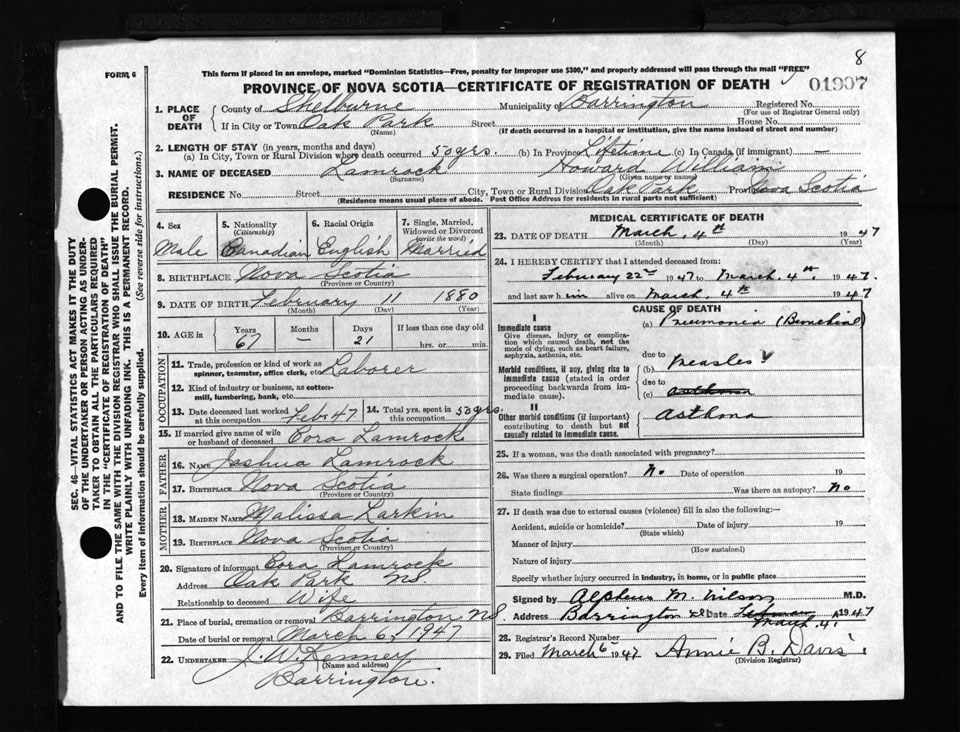 8
FORM 6
This form if placed in an envelope, marked "Dominion Statistics—Free, penalty for improper use $300," and properly addressed will pass through the mail "FREE"
PROVINCE OF NOVA SCOTIA—CERTIFICATE OF REGISTRATION OF DEATH
01907
SEC. 46—VITAL STATISTICS ACT MAKES IT THE DUTY
OF THE UNDERTAKER OR PERSON ACTING AS UNDER-
TAKER TO OBTAIN ALL THE PARTICULARS REQUIRED
IN THE "CERTIFICATE OF REGISTRATION OF DEATH"
AND TO FILE THE SAME WITH THE DIVISION REGISTRAR WHO SHALL ISSUE THE BURIAL PERMIT.
WRITE PLAINLY WITH UNFADING INK. THIS IS A PERMANENT RECORD.
Every item of information should be carefully supplied. (See reverse side for instructions.)
1. PLACE OF DEATH County of Shelburne Municipality of Barrington Registered No.
(For use of Registrar General only)
If in City or Town Oak Park Street House No.
(Name) (If death occurred in a hospital or institution, give the name instead of street and number)
2. LENGTH OF STAY (in years, months and days)
(a) In City, Town or Rural Division where death occurred 50 yrs. (b) In Province Lifetime (c) In Canada (if immigrant) —
3. NAME OF DECEASED Lamrock Howard William
(Surname) (Given name or names)
RESIDENCE No. Street City, Town or Rural Division Oak Park Province Nova Scotia
(Residence means usual place of abode. Post Office Address for residents in rural parts not sufficient)
4. Sex 5. Nationality (Citizenship) 6. Racial Origin 7. Single, Married, Widowed or Divorced (write the word)
Male Canadian English Married
8. BIRTHPLACE Nova Scotia
(Province or Country)
9. DATE OF BIRTH February 11 1880
(Month) (Day) (Year)
10. AGE in Years Months Days If less than one day old
67 — 21 hrs. or min.
OCCUPATION
11. Trade, profession or kind of work as spinner, teamster, office clerk, etc. Laborer
12. Kind of industry or business, as cotton-mill, lumbering, bank, etc.
13. Date deceased last worked at this occupation Feb 47 14. Total yrs. spent in this occupation 50 yrs.
15. If married give name of wife or husband of deceased Cora Lamrock
FATHER
16. NAME Joshua Lamrock
17. BIRTHPLACE Nova Scotia
(Province or Country)
MOTHER
18. MAIDEN NAME Malissa Larkin
19. BIRTHPLACE Nova Scotia
(Province or Country)
20. Signature of informant Cora Lamrock
Address Oak Park N.S.
Relationship to deceased Wife
21. Place of burial, cremation or removal Barrington N.S.
Date of burial or removal March 6, 1947
22. UNDERTAKER J. W. Kenney
(Name and address)
Barrington.
MEDICAL CERTIFICATE OF DEATH
23. DATE OF DEATH March, 4th 1947
(Month) (Day) (Year)
24. I HEREBY CERTIFY that I attended deceased from:
February 22nd 1947 to March, 4th, 1947.
and last saw him alive on March, 4th 1947
CAUSE OF DEATH
I
Immediate cause (a) Pneumonia (Bronchial)
Give disease, injury or complication which caused death, not the mode of dying, such as heart failure, asphyxia, asthenia, etc.
due to
Morbid conditions, if any, giving rise to immediate cause (stated in order proceeding backwards from immediate cause). (b) Measles
due to
(c) asthma
II
Other morbid conditions (if important) contributing to death but not causally related to immediate cause. Asthma
25. If a woman, was the death associated with pregnancy?
26. Was there a surgical operation? No Date of operation 19
State findings Was there an autopsy? No
27. If death was due to external causes (violence) fill in also the following:—
Accident, suicide or homicide? Date of injury 19
(State which)
Manner of injury
(How sustained)
Nature of injury
Specify whether injury occurred in industry, in home, or in public place
Signed by Alpheus M. Wilson M.D.
Address Barrington Date February 1947
March 4,
28. Registrar's Record Number
29. Filed March 6 1947 Annie B. Davis
(Division Registrar)